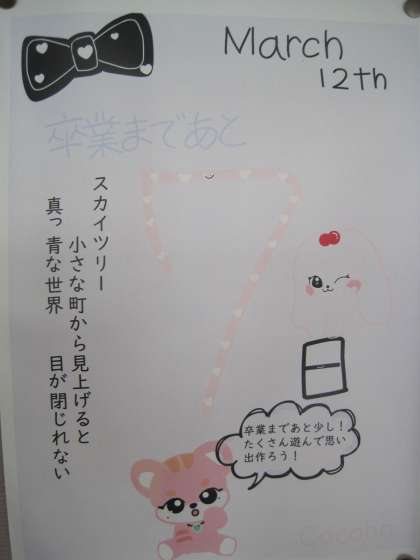 March
12th
卒業まであと
7
日
スカイツリー
小さな町から見上げると
真っ青な世界
目が閉じれない
卒業まであと少し！
たくさん遊んで思い
出作ろう！